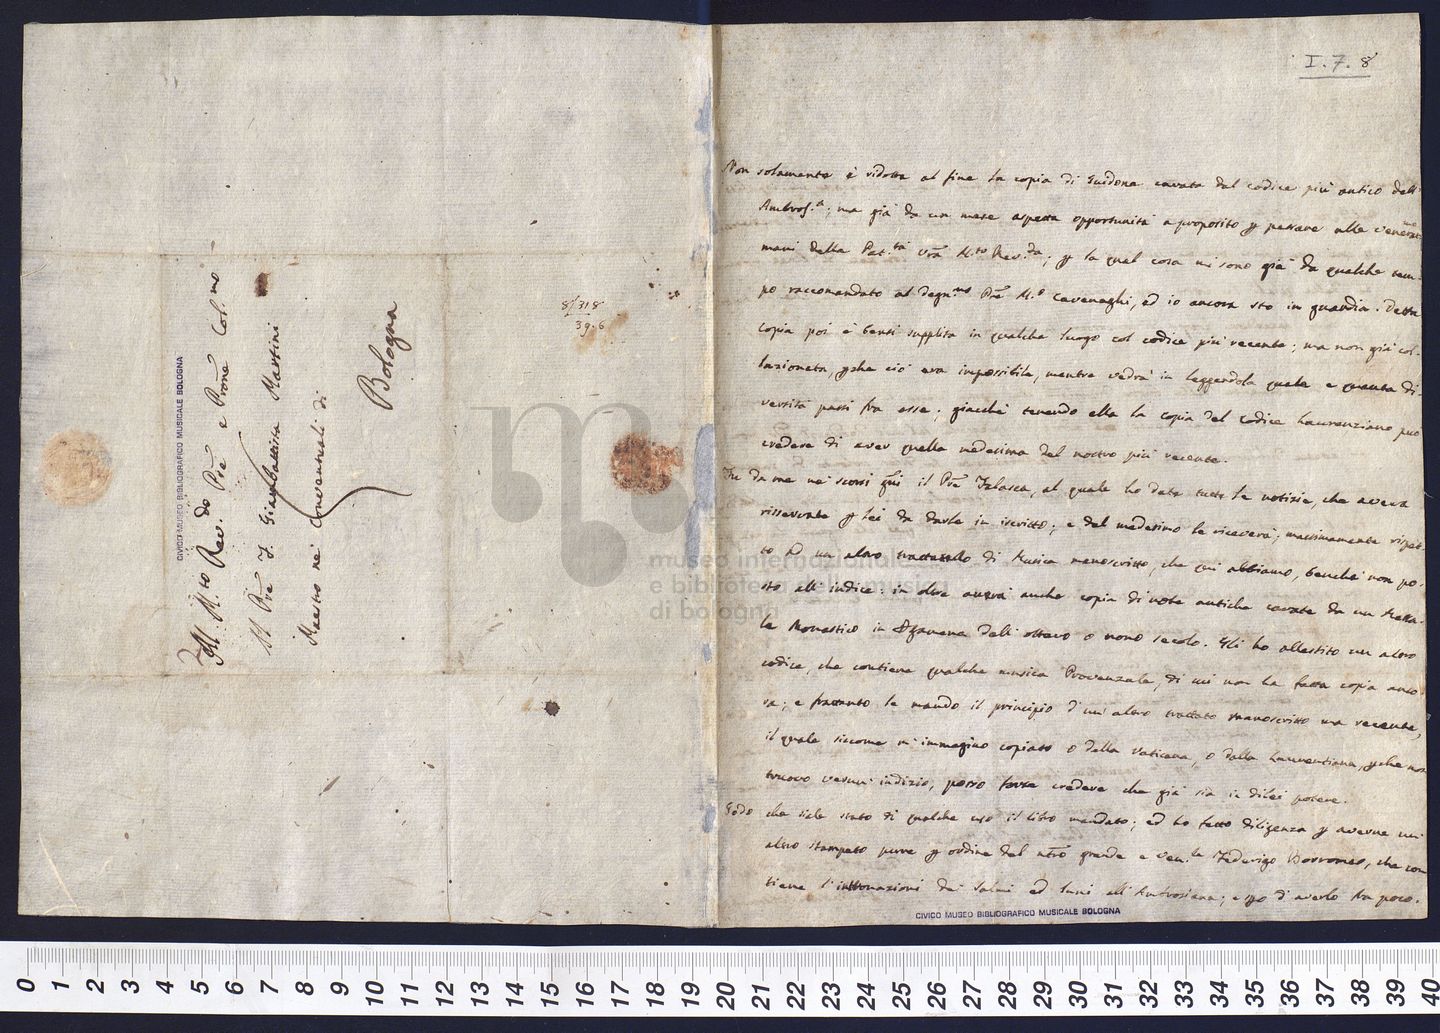 Al M.to Rev.do Pre e Prone Col.mo
Il Pre F. Giambattista Martini
Maestro ne' Conventuali di
Bologna
CIVICO MUSEO BIBLIOGRAFICO MUSICALE BOLOGNA
8/318
39.6
I.7.8
Non solamente è ridotta al fine la copia di Guidone cavata dal codice più antico dell'
Ambros.a; ma già da un mese aspetta opportunità a proposito per passare alle venerat.me
mani della Pat.tà Vrã M.to Rev.da; per la qual cosa mi sono già da qualche tem-
po raccomandato al degn.mo Prẽ M.o Cavenaghi, ed io ancora sto in guardia. Detta
copia poi è bensì supplita in qualche luogo col codice più recente; ma non già col-
lazionata, perche ciò era impossibile, mentre vedrà in leggendola quale e quanta di-
versità passi fra esse; giacchè tenendo ella la copia del codice Laurenziano può
credere di aver quella medesima del nostro più recente.
Fu da me ne' scorsi gni il Prẽ Falasca, al quale ho dato tutte le notizie, che aveva
risservate per lei da darle in iscritto; e dal medesimo le riceverà; massimamente rispet-
to ad un altro trattatello di Musica manoscritto, che qui abbiamo, benchè non po-
sto all'indice: in oltre avrà anche copia di note antiche cavate da un
le Monastico in dell'ottavo o nono secolo. Gli ho allestito un altro
codice, che contiene qualche musica Provenzale, di cui non ha fatta copia anco-
ra; e frattanto le mando il principio d'un altro trattato manoscritto ma recente,
il quale siccome m'immagino copiato o dalla Vaticana, o dalla Laurentiana, perche non
truovo verun' indizio, posso forse credere che già sia in di lei potere.
Godo che siale stato di qualche uso il libro mandato; ed ho fatto diligenza per averne un'
altro stampato pure per ordine del nrõ grande e Ven.le Federigo Borromeo, che con-
tiene l'intonazioni dei Salmi ed Inni all'Ambrosiana; e spo d'averlo fra poco.
CIVICO MUSEO BIBLIOGRAFICO MUSICALE BOLOGNA
museo internazionale
e biblioteca della musica
di bologna
0 1 2 3 4 5 6 7 8 9 10 11 12 13 14 15 16 17 18 19 20 21 22 23 24 25 26 27 28 29 30 31 32 33 34 35 36 37 38 39 40